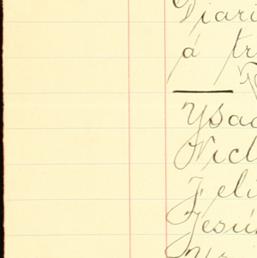 Diari
á tr
Ysa
Vict
Feli
Jesú